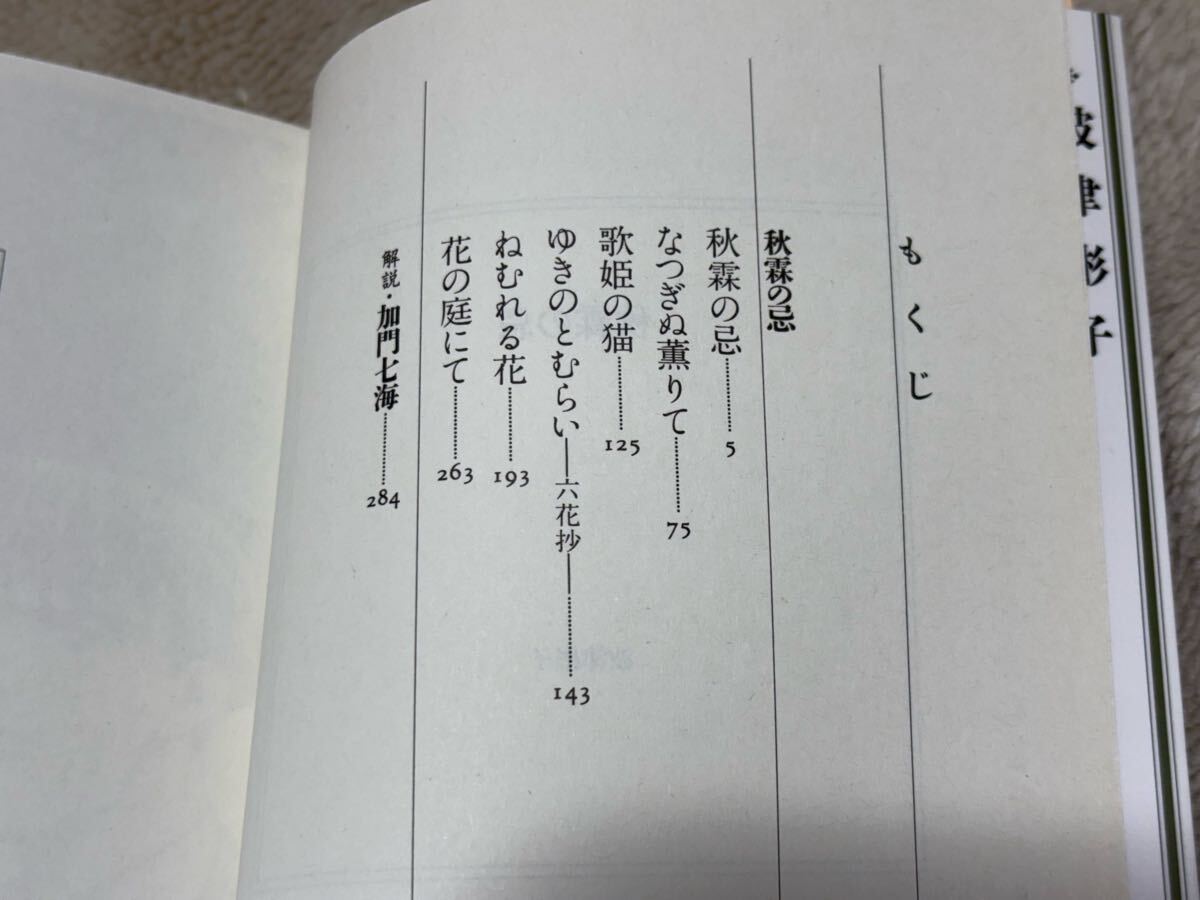 波津彬子
もくじ
秋霖の忌
秋霖の忌………5
なつぎぬ薫りて………75
歌姫の猫………125
ゆきのとむらい──六花抄──………143
ねむれる花………193
花の庭にて………263
解説・加門七海………284